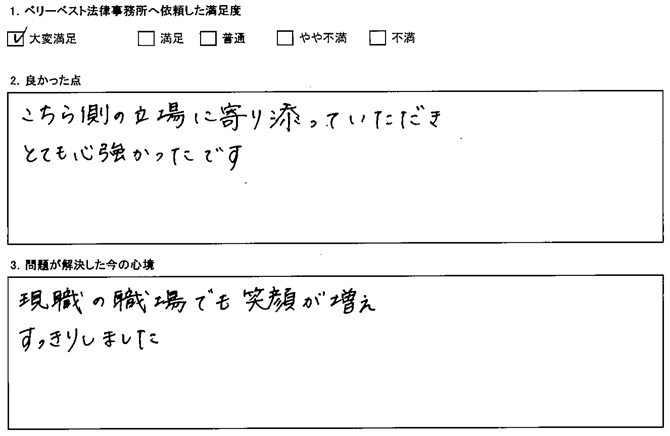 1. ベリーベスト法律事務所へ依頼した満足度
☑ 大変満足 □ 満足 □ 普通 □ やや不満 □ 不満
2. 良かった点
こちら側の立場に寄り添っていただき
とても心強かったです
3. 問題が解決した今の心境
現職の職場でも笑顔が増え
すっきりしました